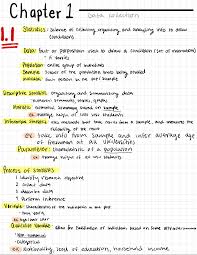 Chapter 1
Data collection
1.1
Statistics: science of collecting, organizing, and analyzing info to draw
conclusions
Data: fact or proposition used to draw a conclusion (set of information)
Population: entire group of individuals
Sample: subset of the population that's being studied
Individual: each person in the pop / sample
Descriptive Statistics: organizing and summarizing data
numerical summaries, tables, graphs
Statistic: numerical summary based on sample
ex. average height of 100 students
Inferential Statistics: uses methods that take results from a sample, and measure the
reliability of the result
ex. take info from sample and infer average age
of freshman at all universities
Parameter: characteristic of a population
ex. average height of all students
Process of Statistics
1. Identify research objective
2. Collect data
3. Describe data
4. Perform inference
Variable: Characteristics of the individuals in the pop
Qualitative Variable: allow for classification of individuals based on some attribute
Non-numerical
Categorical
ex. nationality, level of education, household income